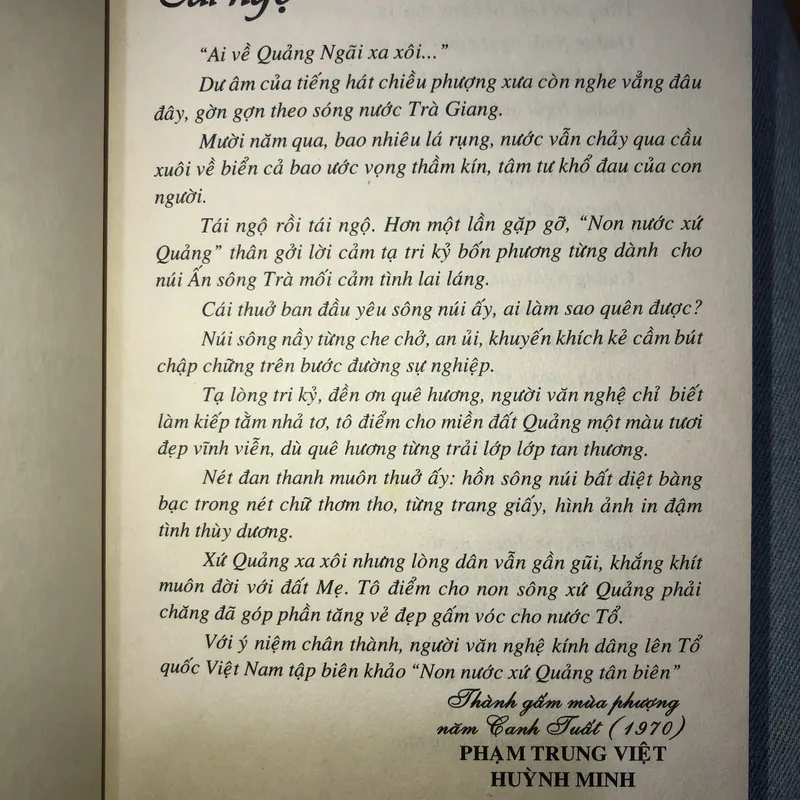 ngộ
“Ai về Quảng Ngãi xa xôi...”
Dư âm của tiếng hát chiều phượng xưa còn nghe vẳng đâu
đây, gờn gợn theo sóng nước Trà Giang.
Mười năm qua, bao nhiêu lá rụng, nước vẫn chảy qua cầu
xuôi về biển cả bao ước vọng thầm kín, tâm tư khổ đau của con
người.
Tái ngộ rồi tái ngộ. Hơn một lần gặp gỡ, “Non nước xứ
Quảng” thân gởi lời cảm tạ tri kỷ bốn phương từng dành cho
núi Ấn sông Trà mối cảm tình lai láng.
Cái thuở ban đầu yêu sông núi ấy, ai làm sao quên được?
Núi sông nầy từng che chở, an ủi, khuyến khích kẻ cầm bút
chập chững trên bước đường sự nghiệp.
Tạ lòng tri kỷ, đền ơn quê hương, người văn nghệ chỉ biết
làm kiếp tằm nhả tơ, tô điểm cho miền đất Quảng một màu tươi
đẹp vĩnh viễn, dù quê hương từng trải lớp lớp tan thương.
Nét đan thanh muôn thuở ấy: hồn sông núi bất diệt bàng
bạc trong nét chữ thơm tho, từng trang giấy, hình ảnh in đậm
tình thùy dương.
Xứ Quảng xa xôi nhưng lòng dân vẫn gần gũi, khắng khít
muôn đời với đất Mẹ. Tô điểm cho non sông xứ Quảng phải
chăng đã góp phần tăng vẻ đẹp gấm vóc cho nước Tổ.
Với ý niệm chân thành, người văn nghệ kính dâng lên Tổ
quốc Việt Nam tập biên khảo “Non nước xứ Quảng tân biên”
Thành gấm mùa phượng
năm Canh Tuất (1970)
PHẠM TRUNG VIỆT
HUỲNH MINH